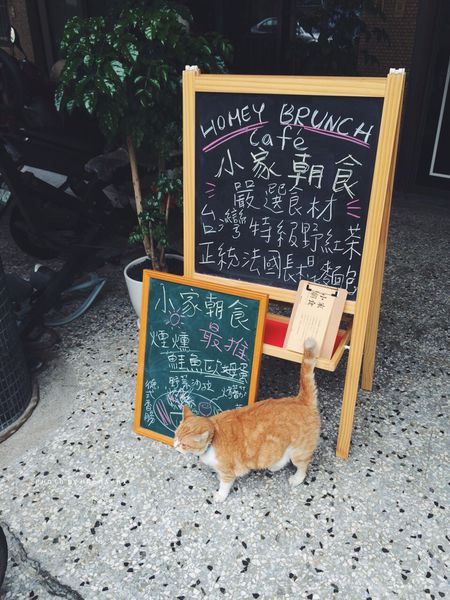 HOMEY BRUNCH
Café
小家朝食
嚴選食材
台灣特級野紅茶
正統法國長棍麵包
小家朝食
最推
煙燻
鮭魚歐姆蛋
野菜沙拉
德式香腸